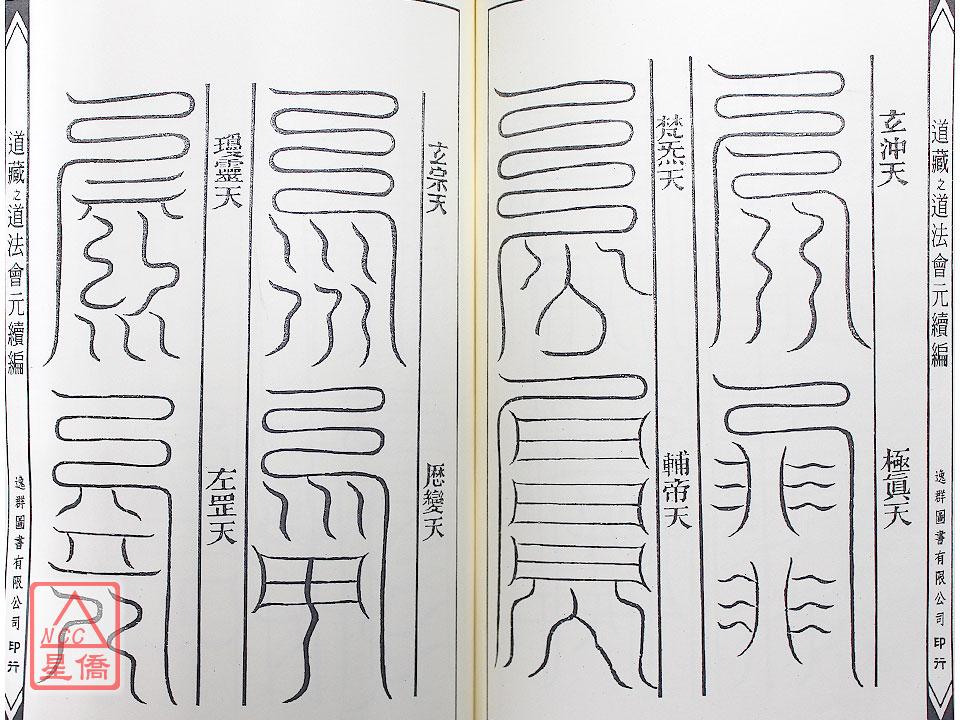 道藏之道法會元續編
逸群圖書有限公司 印行
玄沖天
極眞天
梵炁天
輔帝天
玄宗天
歷變天
瓊靈天
左罡天
道藏之道法會元續編
逸群圖書有限公司 印行
NCC
星僑